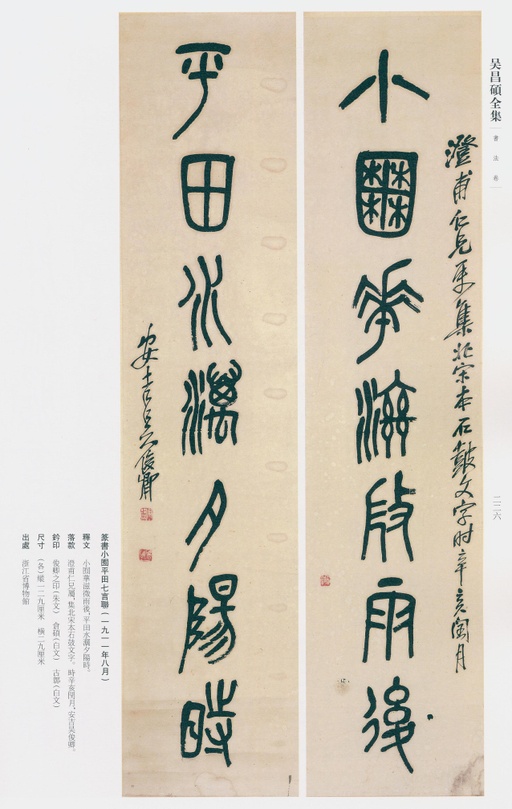 吴昌碩全集
書法卷
二二六
澄甫仁兄屬集北宋本石鼓文字时辛亥閏月
小囿華滋微雨後
平田水漓夕陽時
安吉吴俊卿
篆書小囿平田七言聯（一九一一年八月）
釋文　小囿華滋微雨後，平田水漓夕陽時。
落款　澄甫仁兄屬，集北宋本石鼓文字。時辛亥閏月，安吉吴俊卿。
鈐印　俊卿之印（朱文）　倉碩（白文）　古鄣（白文）
尺寸　（各）縱一二九厘米　橫二九厘米
出處　浙江省博物館